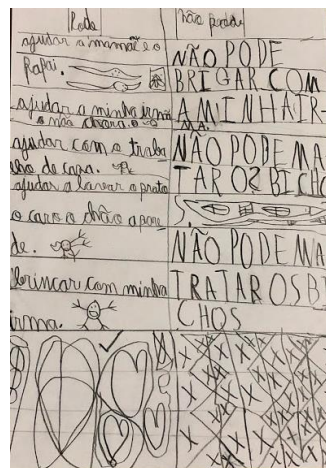 Pode
ajudar a mamãe e o
Papai.
ajudar a minha irmã
a não chorar.
ajudar com o traba
lho de casa.
ajudar a lavar o prato
o carro o chão a pare
de.
brincar com minha
irma.
não pode
NÃO PODE
BRIGAR COM
A MINHA IR-
MA.
NÃO PODE MA
TAR OS BICHO
NÃO PODE MA
TRATAR OS BI
CHOS